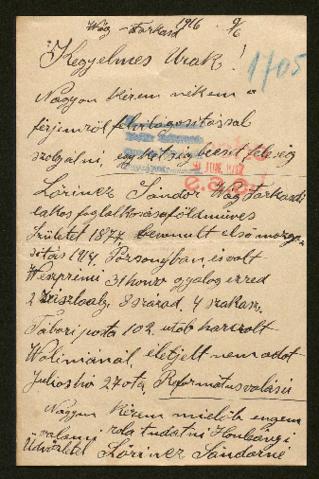 Vág-Farkasd 1916 9/6
Kegyelmes Urak!
1/05
Nagyon kérem nékem a
férjemről felvilágositással
szolgálni, egy kétségbeeset feleség
Lőrincz Sándor Vág Farkasdi
lakos foglalkozása földműves
Született 1877, bevonult első mozgo-
sitás 1914. Pozsonyban és volt
Veszprémi 31 honv gyalog ezred
2 zászloalj, 8 század, 4 szakasz,
Tábori posta 102, utób harczolt
Woliniánál, életjelt nem adot
Julius hó 27 óta, Református valásu
Nagyon kérem mielőb engem
rola tudatni Honleányi
Üdvözletel Lőrincz Sándorné